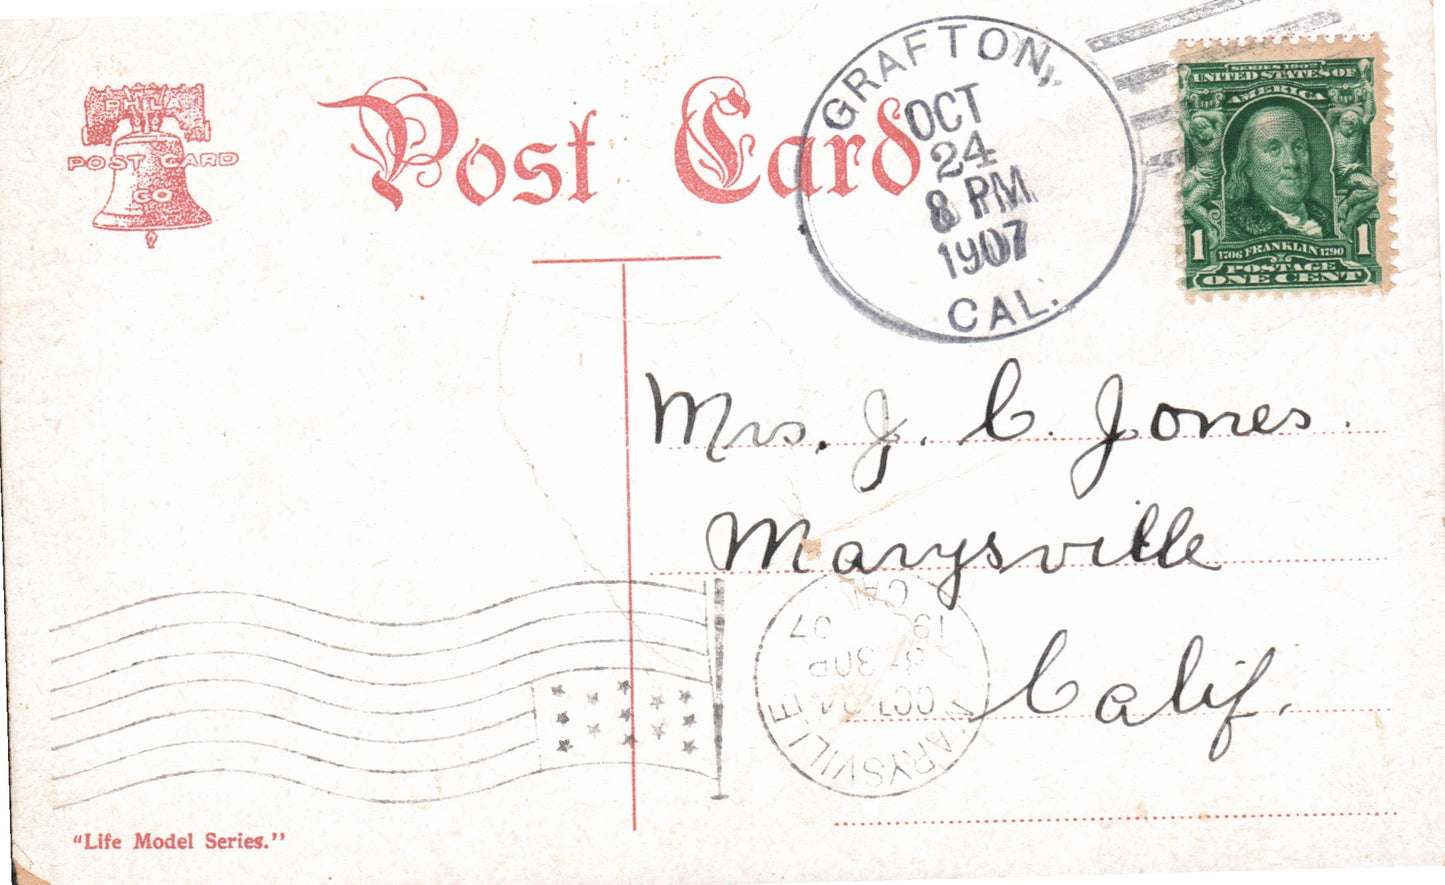 PHILA
POST CARD
CO
Post Card
GRAFTON,
OCT
24
8 PM
1907
CAL.
SERIES 1902
UNITED STATES OF
AMERICA
1 1706 FRANKLIN 1790 1
POSTAGE
ONE CENT
Mrs. J. C. Jones.
Marysville
Calif.
MARYSVILLE
OCT 24
8-30P
19 07
CAL
"Life Model Series."